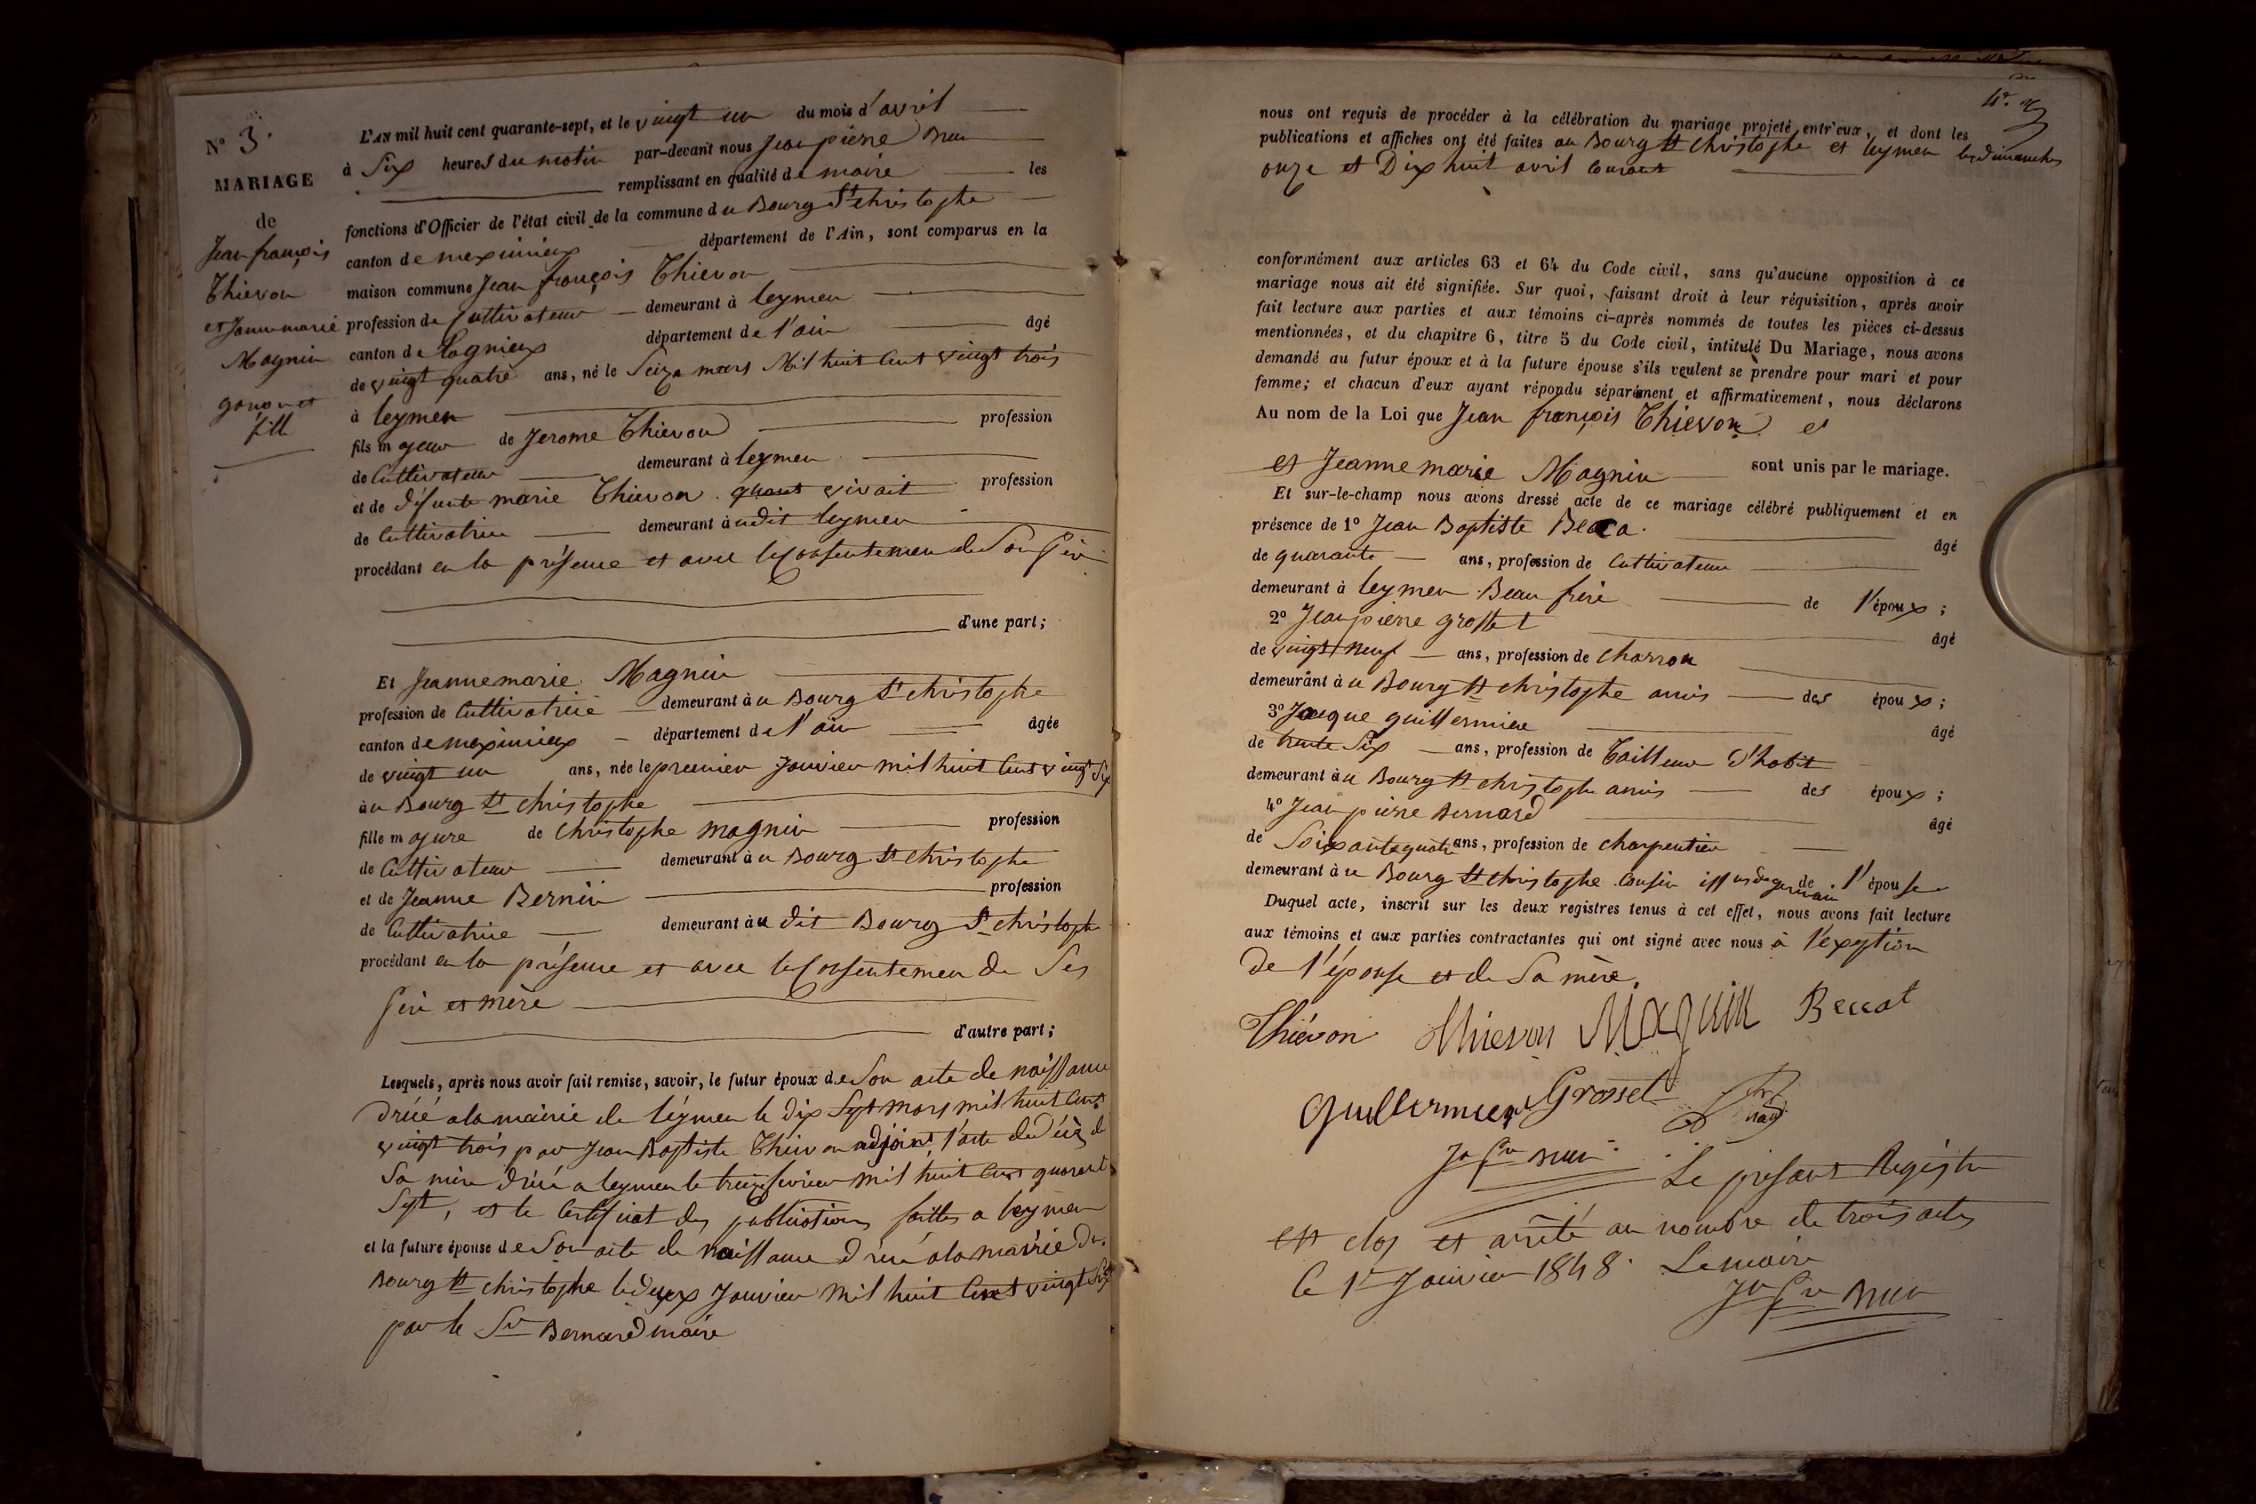 N° 3.
MARIAGE
de
Jean françois
Thievon
et Jeanne marie
Magnin
garçon et
fille
L'AN mil huit cent quarante-sept, et le vingt un du mois d'avril
à Six heures du matin par-devant nous Jean pierre Brun
remplissant en qualité de maire les
fonctions d'Officier de l'état civil de la commune du Bourg St christophe
canton de meximieux département de l'Ain, sont comparus en la
maison commune Jean françois Thievon
profession de Cultivateur demeurant à leymen
canton de Lagnieux département de l'ain âgé
de vingt quatre ans, né le Seize mars Mil huit Cent vingt trois
à leymen
fils majeur de Jerome Thievon profession
de Cultivateur demeurant à leymen
et de défunte marie Thievon quant vivait profession
de Cultivatrice demeurant à udit leymen
procédant en la présence et avec le Consentemen de Son père
d'une part;
Et Jeanne marie Magnin
profession de Cultivatrice demeurant à u Bourg St christophe
canton de meximieux département de l'ain âgée
de vingt un ans, née le premier Janvier mil huit Cent vingt Six
à u Bourg St christophe
fille majure de Christophe magnin profession
de Cultivateur demeurant à u Bourg St christophe
et de Jeanne Bernin profession
de Cultivatrice demeurant à u dit Bourg St christophe
procédant en la présence et avec le Consentemen de Ses
père et mère
d'autre part;
Lesquels, après nous avoir fait remise, savoir, le futur époux de Son acte de naissance
à la mairie de léymen le dix Sept mars mil huit Cent
vingt trois par Jean Baptiste Thievon adjoint, l'acte de décès de
Sa mère a leymen le treize fevrier mil huit Cent quarente
Sept, et le Certificat des publications faittes a leymen
et la future épouse de Son acte de naissance à la mairie du
Bourg St christophe le deux Janvier mil huit Cent vingt Six
par le Sr Bernard maire
4e
nous ont requis de procéder à la célébration du mariage projeté entr'eux, et dont les
publications et affiches ont été faites au Bourg St christophe et leymen les dimanches
onze et Dix huit avril Courant
conformément aux articles 63 et 64 du Code civil, sans qu'aucune opposition à ce
mariage nous ait été signifiée. Sur quoi, faisant droit à leur réquisition, après avoir
fait lecture aux parties et aux témoins ci-après nommés de toutes les pièces ci-dessus
mentionnées, et du chapitre 6, titre 5 du Code civil, intitulé Du Mariage, nous avons
demandé au futur époux et à la future épouse s'ils veulent se prendre pour mari et pour
femme; et chacun d'eux ayant répondu séparément et affirmativement, nous déclarons
Au nom de la Loi que Jean françois Thievon et
et Jeanne marie Magnin sont unis par le mariage.
Et sur-le-champ nous avons dressé acte de ce mariage célébré publiquement et en
présence de 1° Jean Baptiste âgé
de quarante ans, profession de Cultivateur
demeurant à leymen Beau frère de l'époux;
2° Jean pierre grosset âgé
de vingt neuf ans, profession de charron
demeurant à u Bourg St christophe amis des époux;
3° Jacque guillermier âgé
de trente Six ans, profession de tailleur d'habit
demeurant à u Bourg St christophe amis des époux;
4° Jean pierre Bernard âgé
de Soixante quatre ans, profession de charpentier
demeurant à u Bourg St christophe Cousin issus de germain de l'épouse
Duquel acte, inscrit sur les deux registres tenus à cet effet, nous avons fait lecture
aux témoins et aux parties contractantes qui ont signé avec nous à l'exeption
de l'épouse et de Sa mère.
Thiévon thievon Magnin Beccat
guillermier Grosset
Jn Pre Brun
Le présent Registre
est clos et arrêté au nombre de trois actes
Ce 1er Janvier 1848. Le maire
Jn Pre Brun